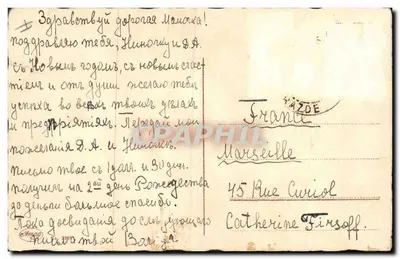 Здравствуй дорогая Мамочка!
поздравляю тебя, Ниночку и Д.А.
съ Новымъ годомъ, съ новымъ счас-
тіемъ и отъ души желаю тебѣ
успѣха во всѣхъ твоихъ дѣлахъ
и предпріятіяхъ. Передай мои
пожеланія Д.А. и Ниночкѣ.
письмо твое съ
получила на 2ой день Рождества
большое спасибо.
Пока досвиданія до слѣдующаго
письма твой
France
Marseille
45 Rue Curiol
Catherine Firsoff.
CARPHILU